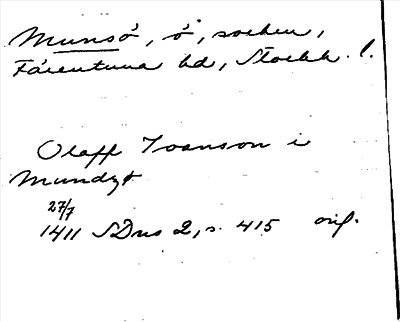 Munsö, ö, socken,
Färentuna hd, Stockh. l.
Olaff Joanson i
Mundzø
27/7
1411 SDns 2, s. 415 orig.